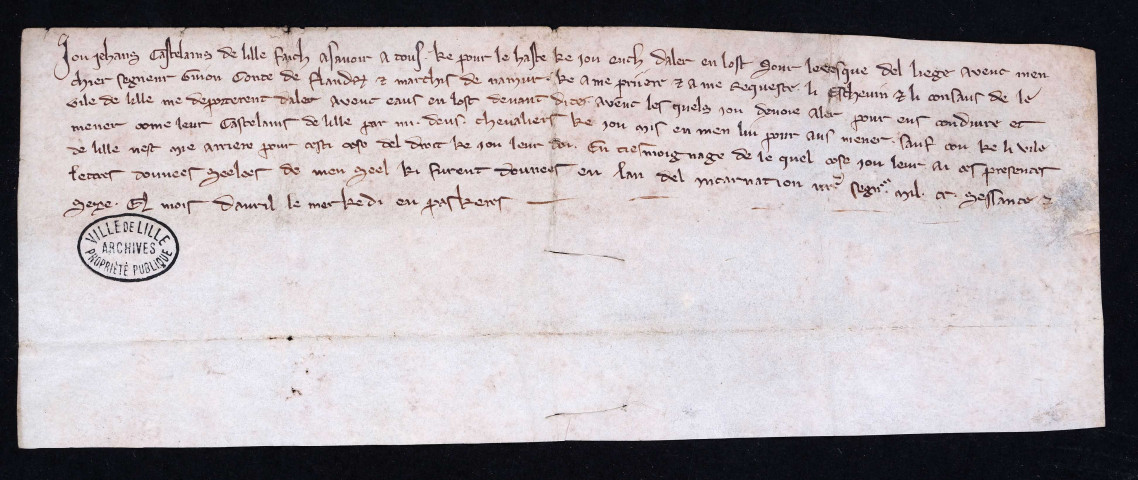 Jou Jehans Castelains de lille faich asavoir a tous . ke pour le haste ke jou euch daler en lost sour levesque del liege aveuc men
chier segneur Guion Conte de Flandres & marchis de namur . ke a me priiere & a me requeste . li Eschevin & li consaus de le
vile de lille me deporterent daler aveuc eaus en lost devant dite aveuc les quels jou devoie aler pour eus conduire et
mener come leur Castelains de lille par mi . deus . chevaliers ke jou mis en men liu pour aus mener . sauf cou ke li vile
de lille nest mie arriere pour ceste cose del droit ke jou leur doi . En tiesmoignage de le quel cose jou leur ai ces presentes
lettres donnees seelees de men seel ki furent donnees en lan del incarnation nrẽ segnr̃ . mil . cc . sessante &
seze . El mois davril le merkedi en paskeres
VILLE DE LILLE
ARCHIVES
PROPRIÉTÉ PUBLIQUE